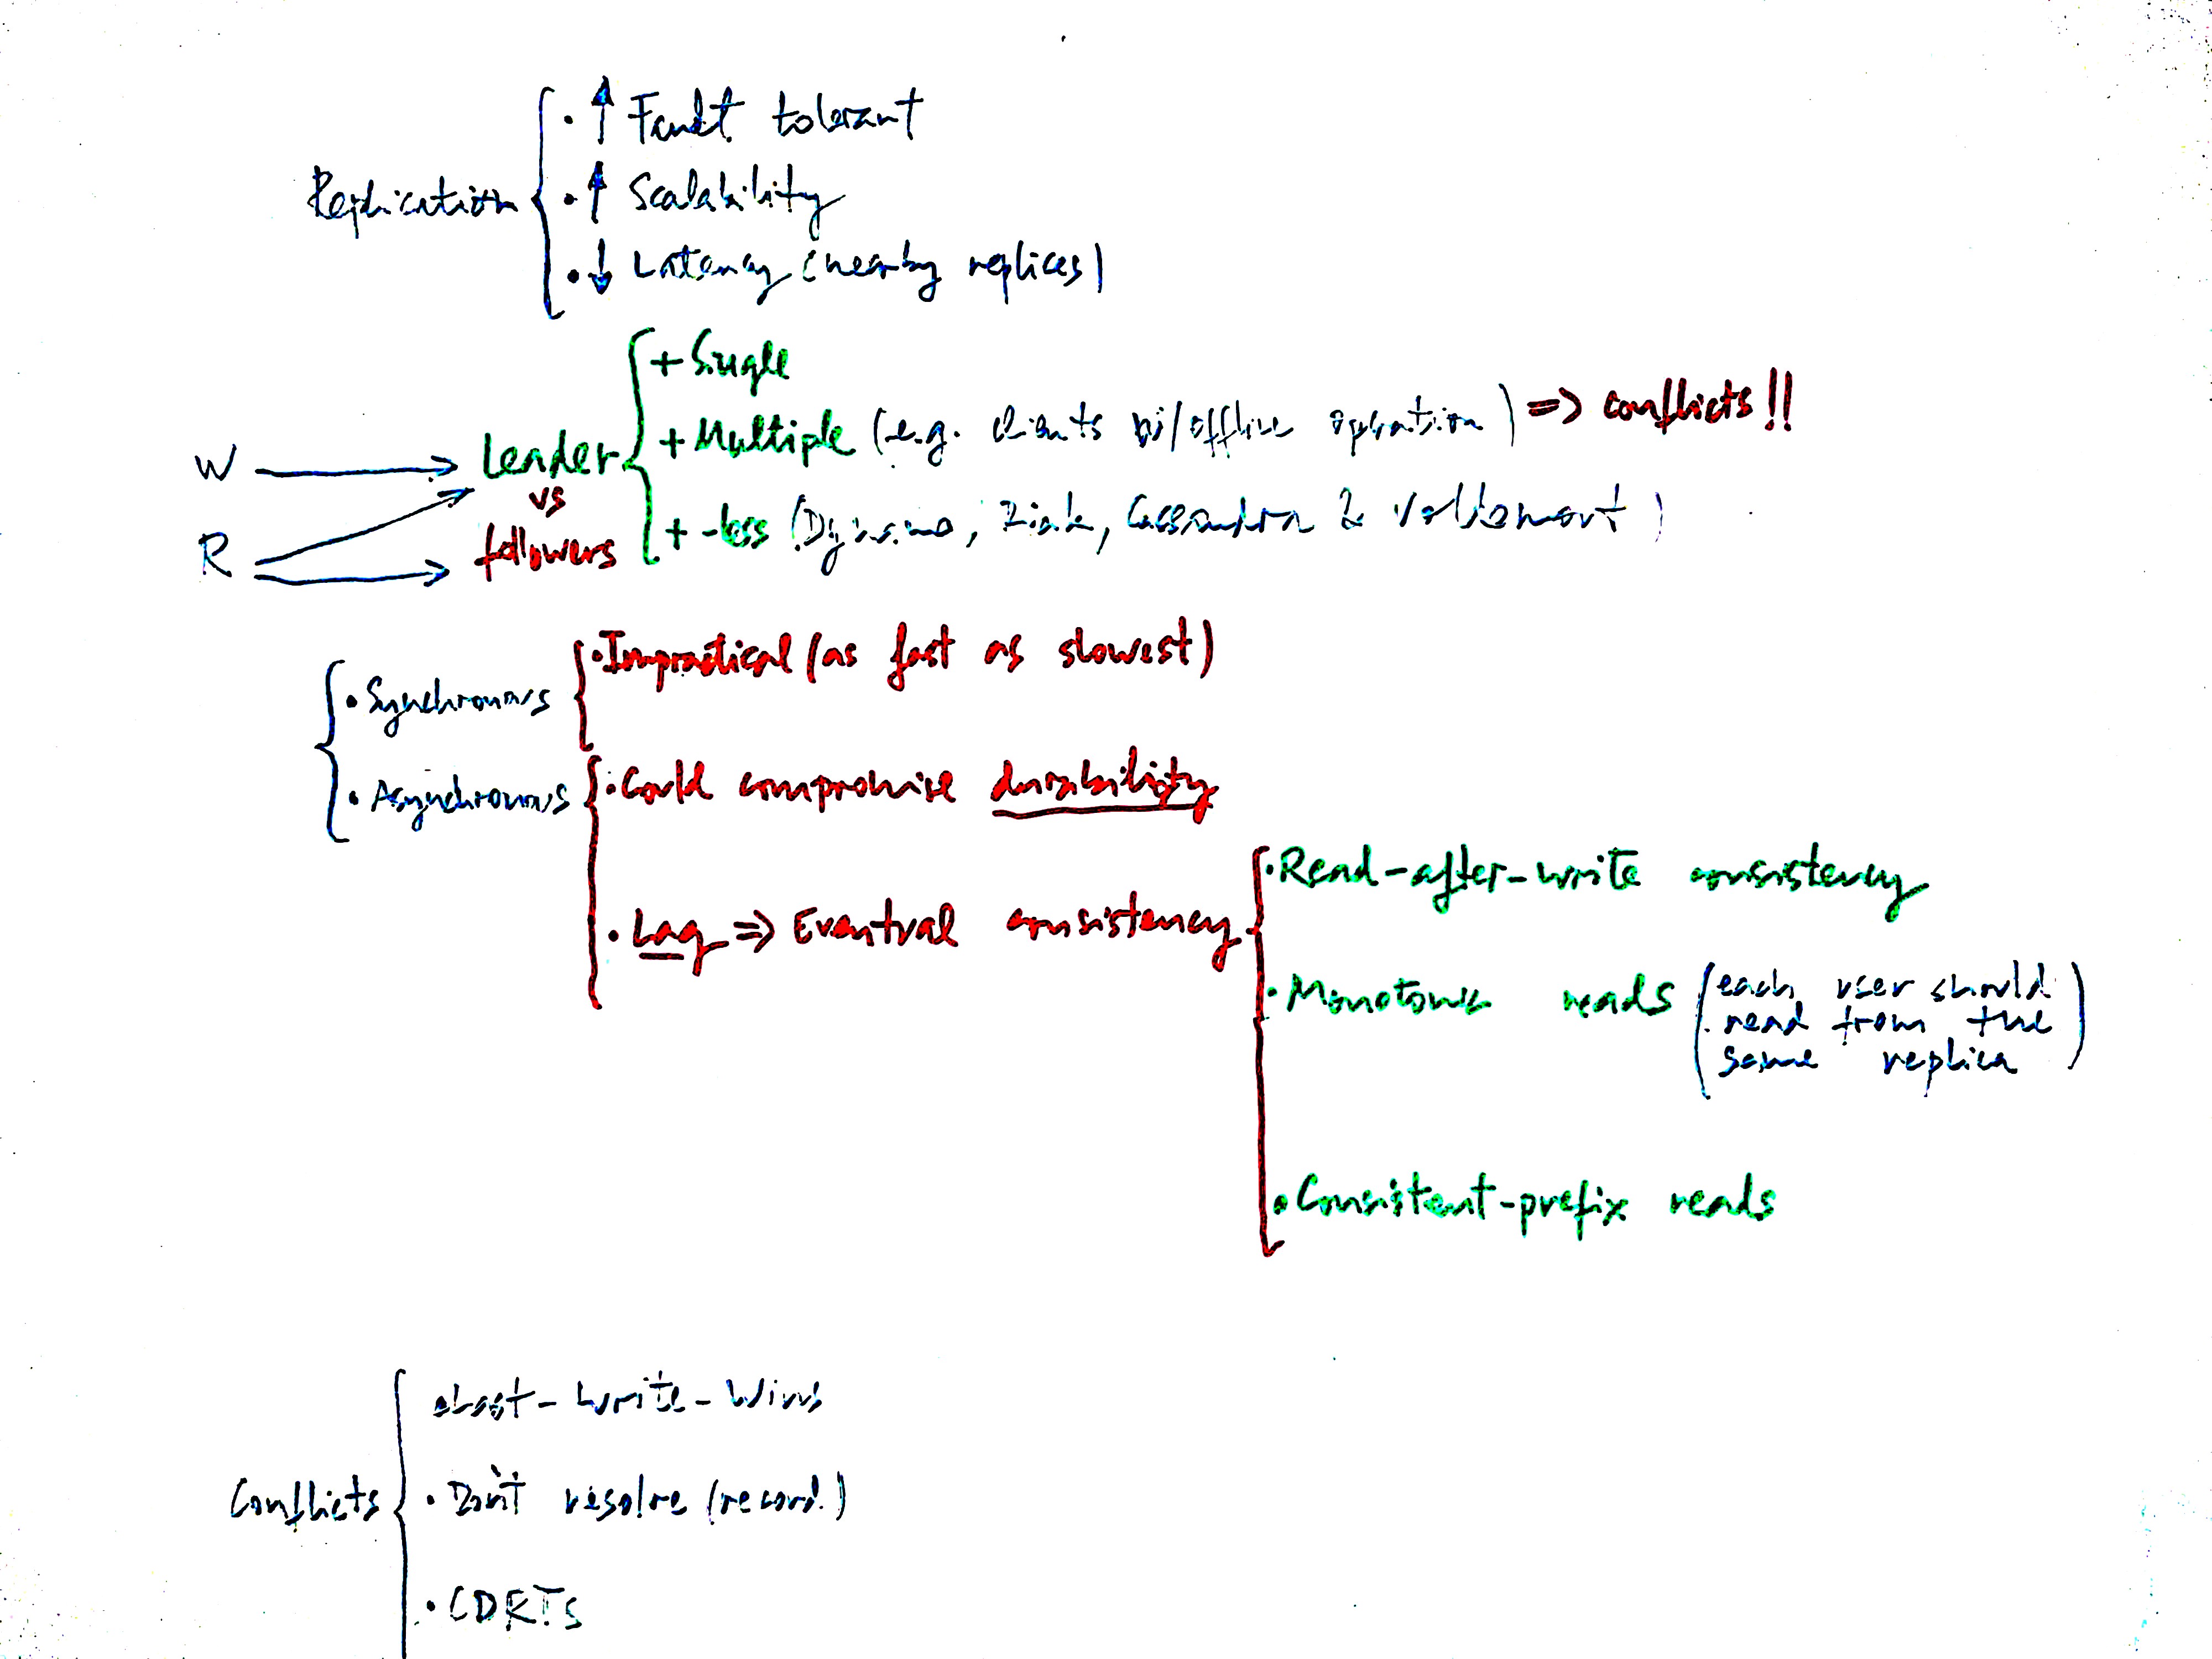 Replication
• ↑ Fault tolerant
• ↑ Scalability
• ↓ Latency (nearby replices)
W
R
Leader
vs
followers
+ Single
+ Multiple (e.g. clients w/offline operation) => conflicts!!
+ -less (Dynamo, Riak, Cassandra & Voldemort)
• Synchronous
• Impractical (as fast as slowest)
• Asynchronous
• Could compromise durability
• Lag => Eventual consistency
• Read-after-write consistency
• Monotonic reads (each user should
read from the
same replica)
• Consistent-prefix reads
Conflicts
• Last-Write-Wins
• Don't resolve (record)
• CDRTs